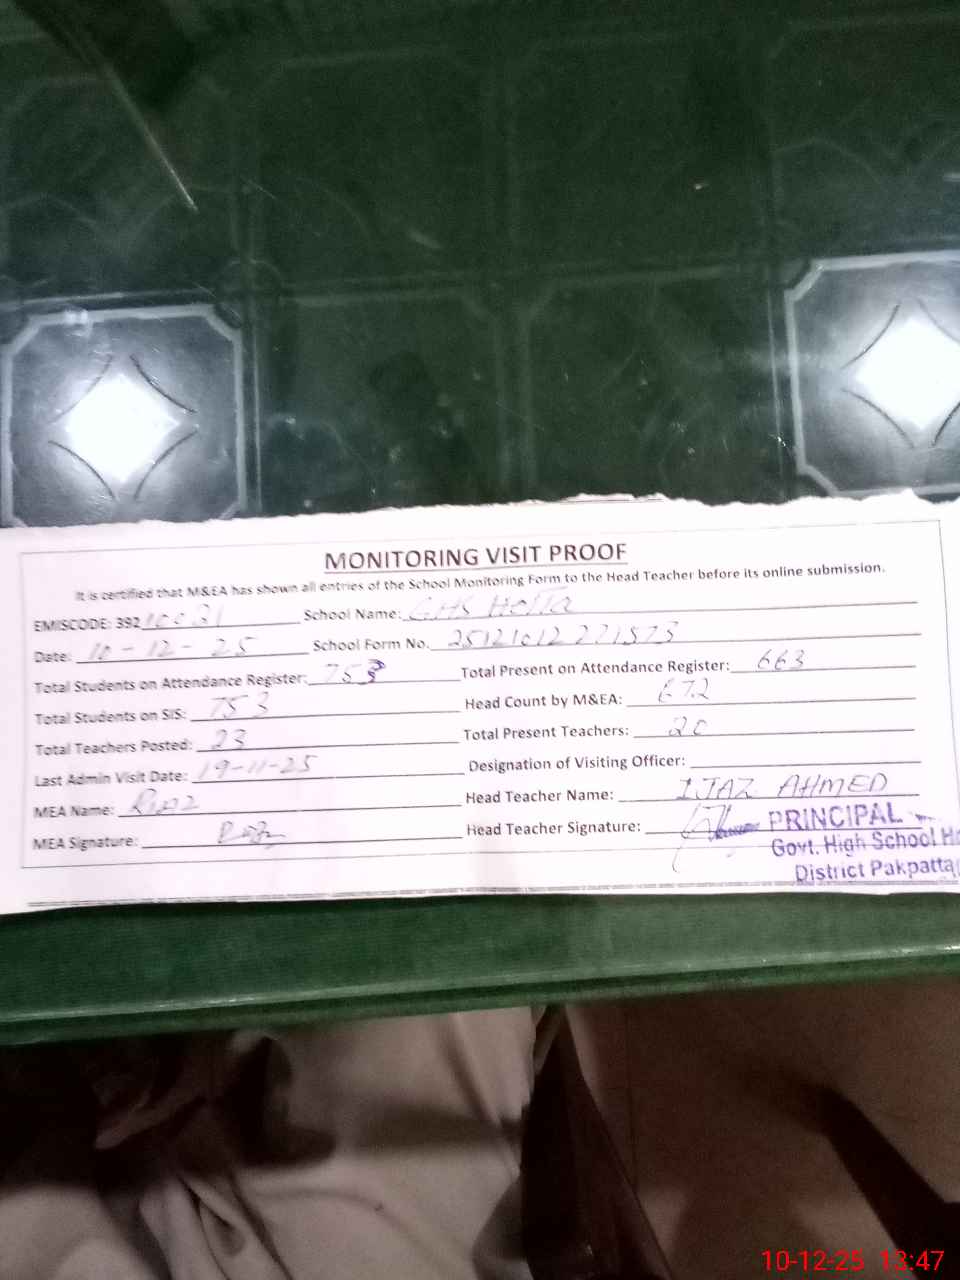 MONITORING VISIT PROOF
It is certified that M&EA has shown all entries of the School Monitoring Form to the Head Teacher before its online submission.
EMISCODE: 39210021 School Name: GHS Hotta
Date: 10-12-25 School Form No. 25121012221573
Total Students on Attendance Register: 753 Total Present on Attendance Register: 663
Total Students on SIS: 753 Head Count by M&EA: 672
Total Teachers Posted: 23 Total Present Teachers: 20
Last Admin Visit Date: 19-11-25 Designation of Visiting Officer:
MEA Name: Riaz Head Teacher Name: IJAZ AHMED
MEA Signature: Head Teacher Signature:
PRINCIPAL
Govt. High School Ho
District Pakpatta
10-12-25 13:47